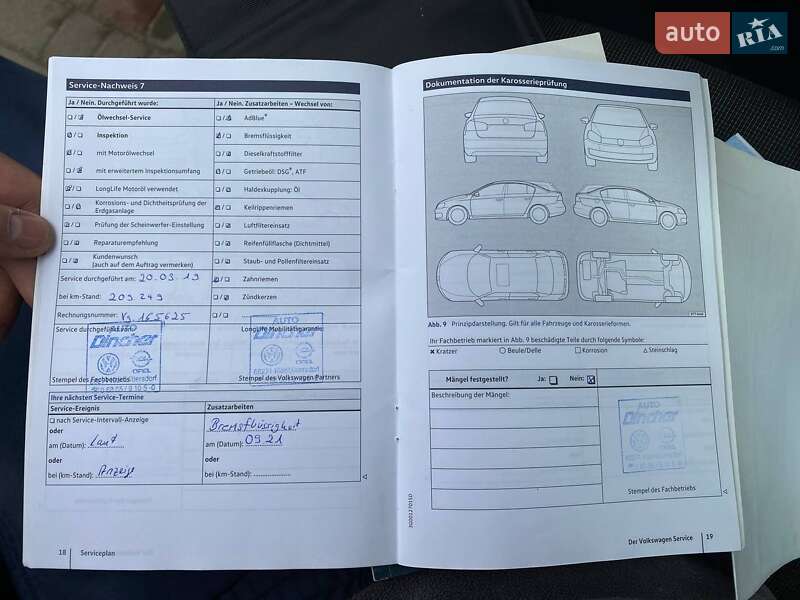 auto RIA.com
Service-Nachweis 7
Ja / Nein. Durchgeführt wurde:
Ölwechsel-Service
Inspektion
mit Motorölwechsel
mit erweitertem Inspektionsumfang
LongLife Motoröl verwendet
Korrosions- und Dichtheitsprüfung der
Erdgasanlage
Prüfung der Scheinwerfer-Einstellung
Reparaturempfehlung
Kundenwunsch
(auch auf dem Auftrag vermerken)
Service durchgeführt am: 20.03.19
bei km-Stand: 209.249
Rechnungsnummer: Vg.165625
Service durchgeführt von:
AUTO
Dincher
OPEL
Stempel des Fachbetriebs
Ja / Nein. Zusatzarbeiten – Wechsel von:
AdBlue®
Bremsflüssigkeit
Dieselkraftstofffilter
Getriebeöl: DSG®, ATF
Haldexkupplung: Öl
Keilrippenriemen
Luftfiltereinsatz
Reifenfüllflasche (Dichtmittel)
Staub- und Pollenfiltereinsatz
Zahnriemen
Zündkerzen
LongLife Mobilitätsgarantie:
AUTO
Dincher
OPEL
Stempel des Volkswagen Partners
Ihre nächsten Service-Termine
Service-Ereignis
nach Service-Intervall-Anzeige
oder
am (Datum): Laut
oder
bei (km-Stand): Anzeige
Zusatzarbeiten
Bremsflüssigkeit
am (Datum): 03.21
oder
bei (km-Stand):
18 Serviceplan
Dokumentation der Karosserieprüfung
Abb. 9 Prinzipdarstellung. Gilt für alle Fahrzeuge und Karosserieformen.
Ihr Fachbetrieb markiert in Abb. 9 beschädigte Teile durch folgende Symbole:
Kratzer Beule/Delle Korrosion Steinschlag
Mängel festgestellt? Ja: Nein:
Beschreibung der Mängel:
AUTO
Dincher
Stempel des Fachbetriebs
Der Volkswagen Service 19